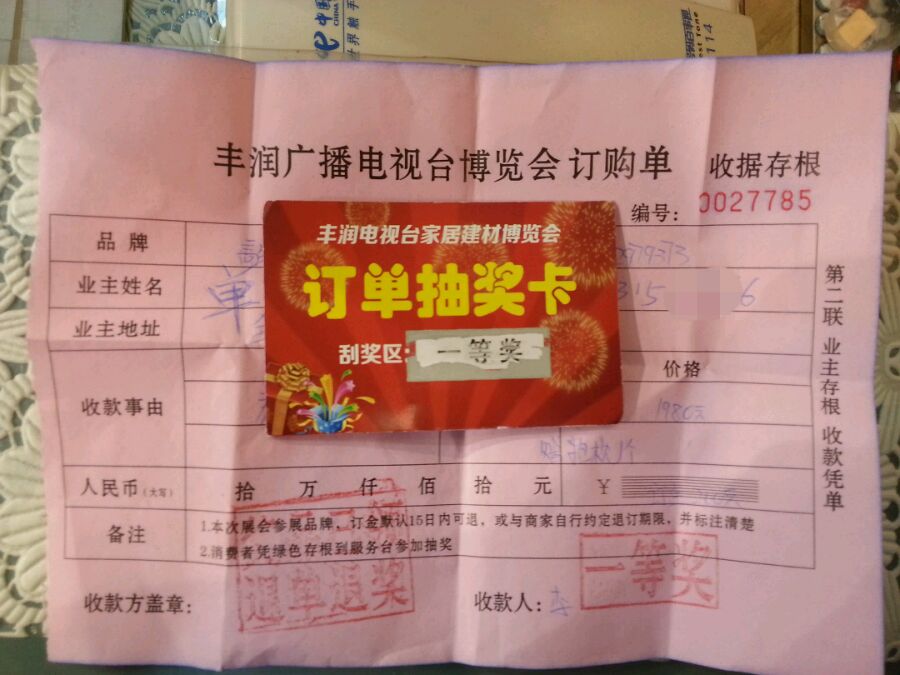 中国
CHINA
世界触手
114
丰润广播电视台博览会 订购单 收据存根
编号: 0027785
品牌
业主姓名 单 315 6
业主地址
收款事由 价格
1980元
人民币(大写) 拾 万 仟 佰 拾 元 ￥
备注 1.本次展会参展品牌，订金默认15日内可退，或与商家自行约定退订期限，并标注清楚
2.消费者凭绿色存根到服务台参加抽奖
收款方盖章: 收款人:
退单退奖
一等奖
第二联 业主存根 收款凭单
丰润电视台家居建材博览会
订单抽奖卡
刮奖区: 一等奖